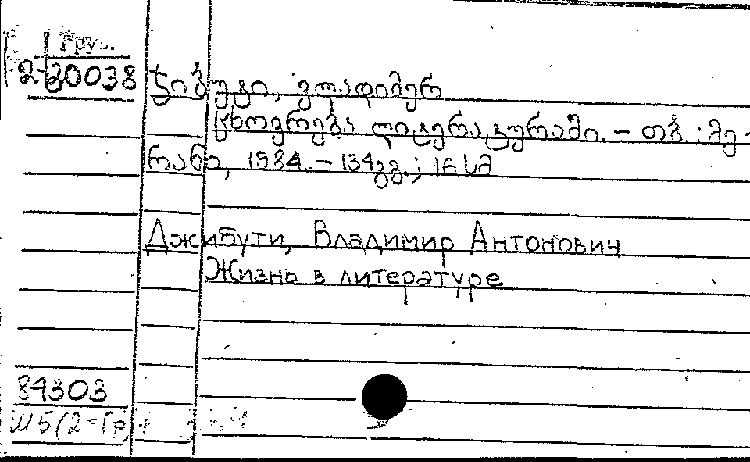 Груз.
2-20038
ჯიბუტი, ვლადიმერ
ცხოვრება ლიტერატურაში. – თბ.: მე-
რანი, 1984. – 134გვ.; 16სმ
Джибути, Владимир Антонович
Жизнь в литературе
84303
Ш5(2=Гр)